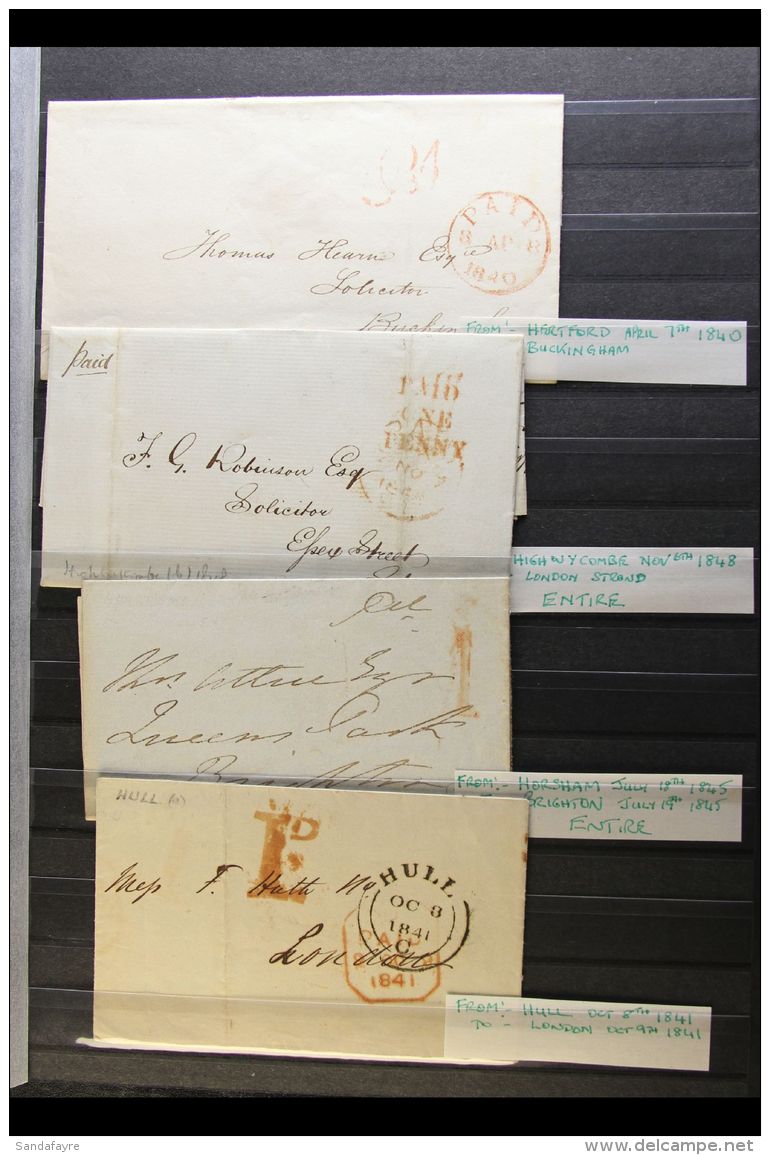 PAID
8 AP 8
1840
Thomas Hearn Esqre
Solicitor
FROM:- HERTFORD APRIL 7TH 1840
BUCKINGHAM
Paid
PAID
ONE
PENNY
F. G. Robinson Esq
Solicitor
Essex Street
HIGH WYCOMBE NOV 6TH 1848
- LONDON STRAND
ENTIRE
1
Queens Park
Brighton
FROM:- HORSHAM JULY 18TH 1845
BRIGHTON JULY 19TH 1845
ENTIRE
HULL
Mess F. Huth
HULL
OC 8
1841
C
London
PAID
1841
FROM:- HULL OCT 8TH 1841
TO - LONDON OCT 9TH 1841
Sandafayre
delcampe.net